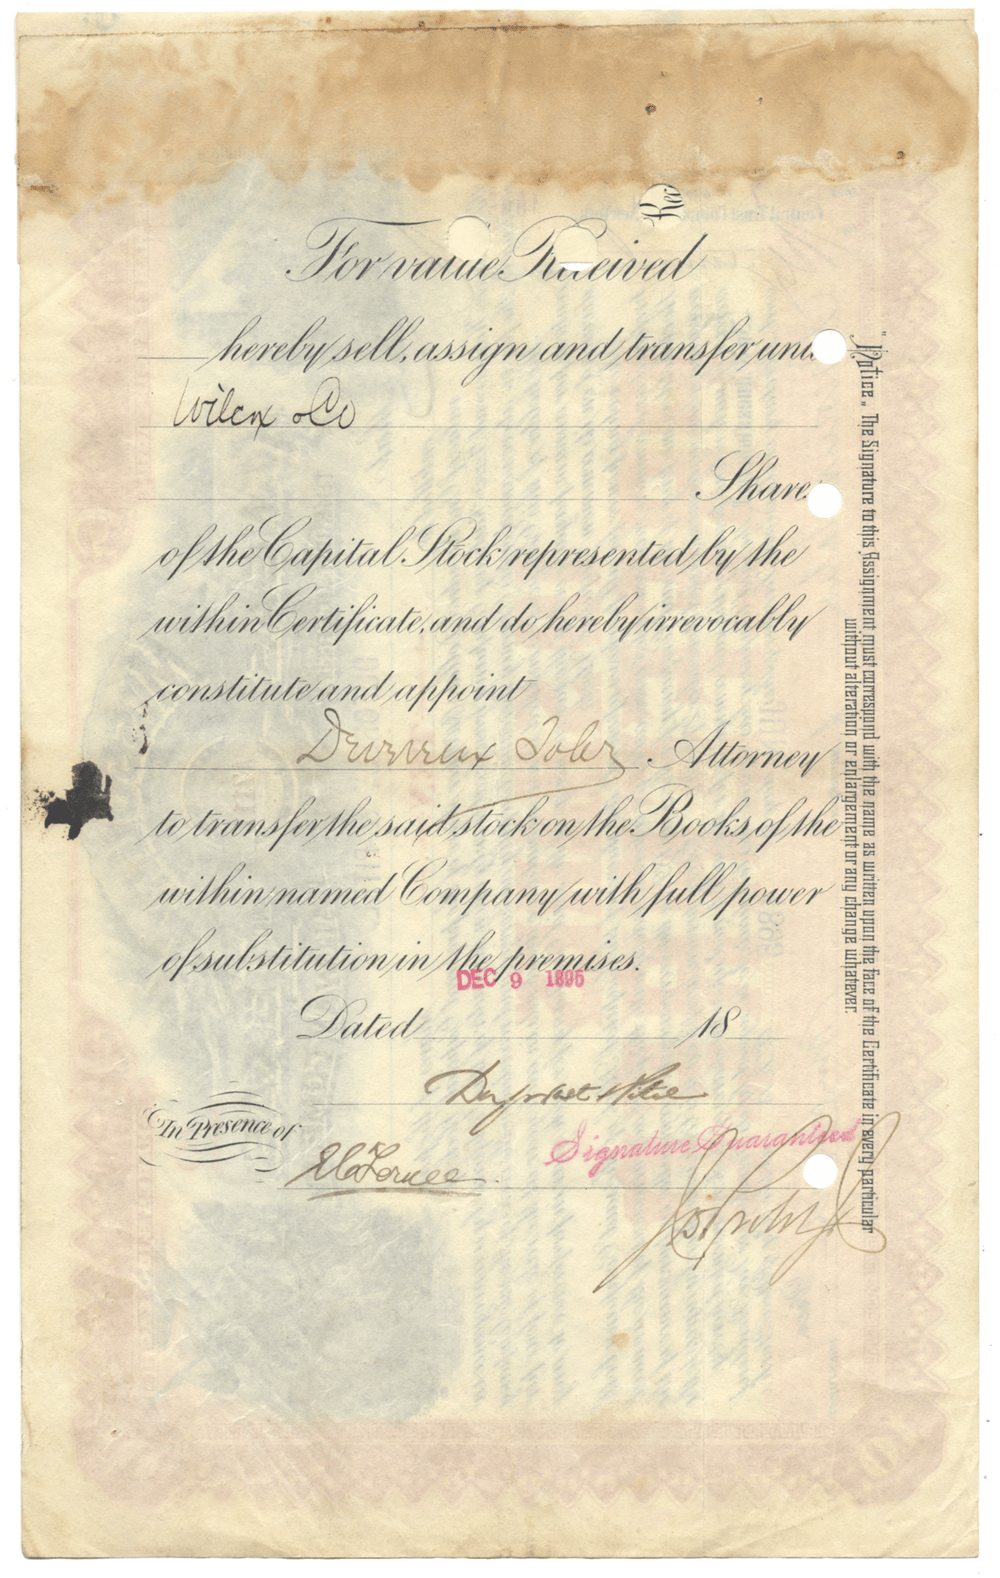 For value Received
hereby sell, assign and transfer unto
Wilcox & Co
Shares
of the Capital Stock represented by the
within Certificate, and do hereby irrevocably
constitute and appoint
Devereux Attorney
to transfer the said stock on the Books of the
within named Company with full power
of substitution in the premises.
DEC 9 1895
Dated 18
In Presence of
Signature Guaranteed
"Notice." The Signature to this Assignment must correspond with the name as written upon the face of the Certificate in every particular
without alteration or enlargement or any change whatever.